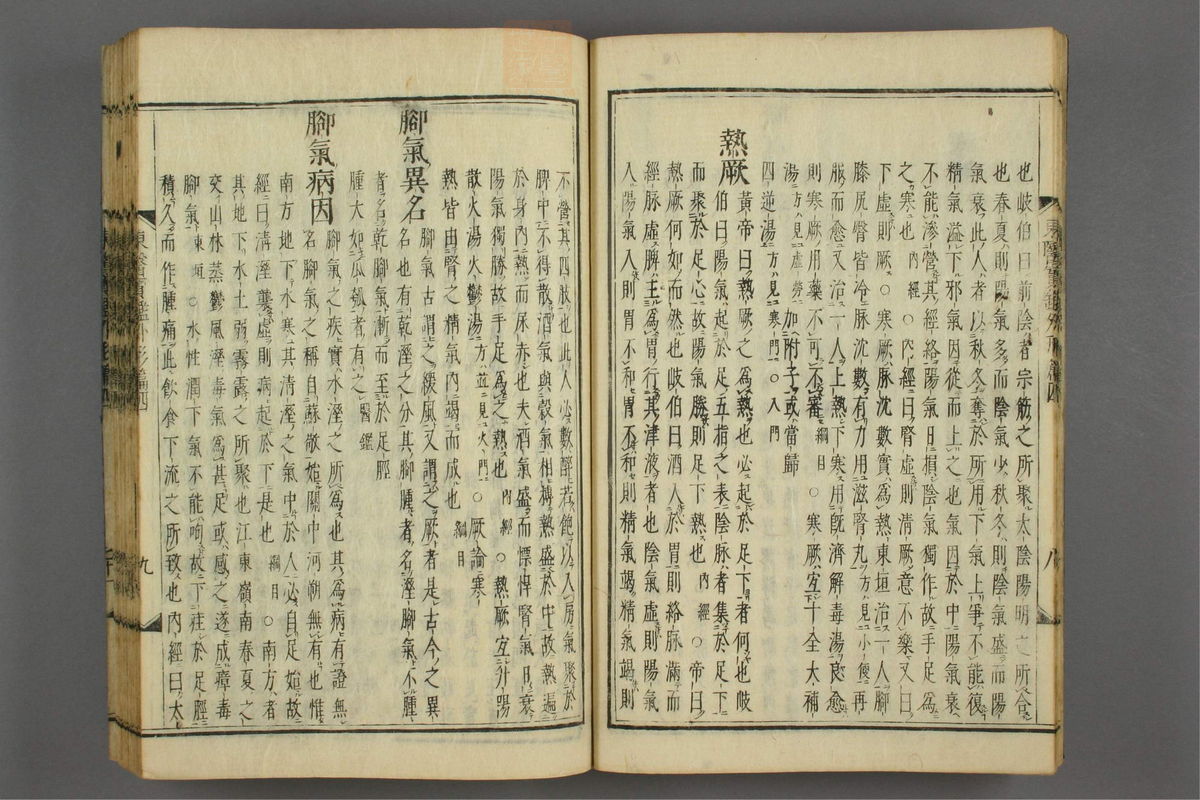 也岐伯曰前陰者宗筋之所聚太陰陽明之所合
也春夏則陽氣多而陰氣少秋冬則陰氣盛而陽
氣衰此人者以秋冬奪於所用下氣上爭不能復
精氣溢下邪氣因從而上之也氣因於中陽氣衰
不能滲營其經絡陽氣日損陰氣獨作故手足爲
之寒也 內經 ○內經曰腎虛則清厥意不樂又曰
下虛則厥○寒厥脉沈數實爲熱東垣治一人脚
膝尻臀皆冷脉沈數有力用滋腎丸方見小便再
服而愈又治一人上熱下寒用旣濟解毒湯良愈
則寒厥用藥不可不審 綱目 ○寒厥宜十全大補
湯方見虛勞加附子或當歸
四逆湯方見寒門○入門
熱厥黃帝曰熱厥之爲熱也必起於足下者何也岐
伯曰陽氣起於足五指之表陰脉者集於足下
而聚於足心故陽氣勝則足下熱也 內經 ○帝曰
熱厥何如而然也岐伯曰酒人於胃則絡脉滿而
經脉虛脾主爲胃行其津液者也陰氣虛則陽氣
入陽氣入則胃不和胃不和則精氣竭精氣竭則
八
不營其四肢也此人必數醉若飽以入房氣聚於
脾中不得散酒氣與穀氣相搏熱盛於中故熱遍
於身內熱而尿赤也夫酒氣盛而慓悍腎氣日衰
陽氣獨勝故手足爲之熱也 內經 ○熱厥宜升陽
散火湯火鬱湯方並見火門○厥論寒
熱皆由腎之精氣內竭而成也 綱目
脚氣異名脚氣古謂之緩風又謂之厥者是古今之異
名也有乾溼之分其脚腫者名溼脚氣不腫
者名乾脚氣漸而至於足脛
腫大如瓜瓠者有之 醫鑑
脚氣病因脚氣之疾實水溼之所爲也其爲病有證無
名脚氣之稱自蘇敬始關中河朔無有也惟
南方地下水寒其清溼之氣中於人必自足始故
經曰清溼襲虛則病起於下是也 綱目 ○南方者
其地下水土弱霧露之所聚也江東嶺南春夏之
交山林蒸鬱風溼毒氣爲甚足或感之遂成瘴毒
脚氣東垣○水性潤下氣不能呴故下疰於足脛
積久而作腫痛此飮食下流之所致也內經曰太
九